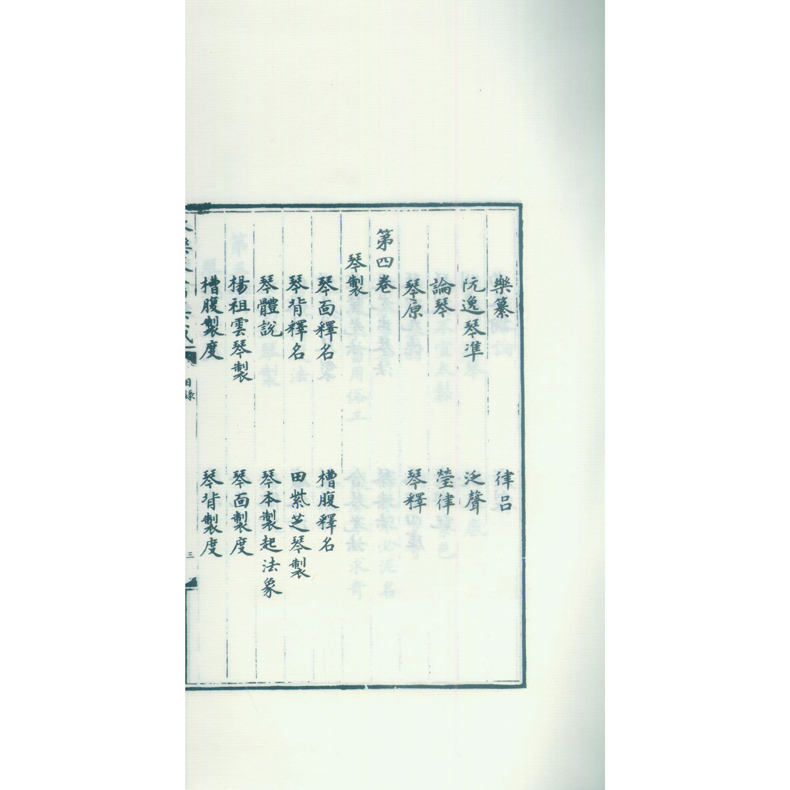 樂纂 律呂
阮逸琴準 泛聲
論琴 瑩律
琴原 琴釋
第四卷
琴製
琴面釋名 槽腹釋名
琴背釋名 田紫芝琴製
琴體說 琴本製起法象
楊祖雲琴製 琴面製度
槽腹製度 琴背製度
目錄 三